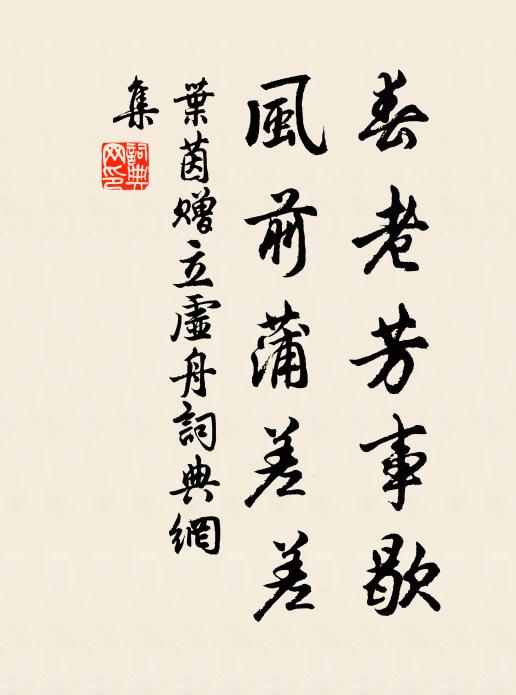 春老芳事歇
風前蒲差差
葉茵贈立虛舟詞典網
集
詞典網印